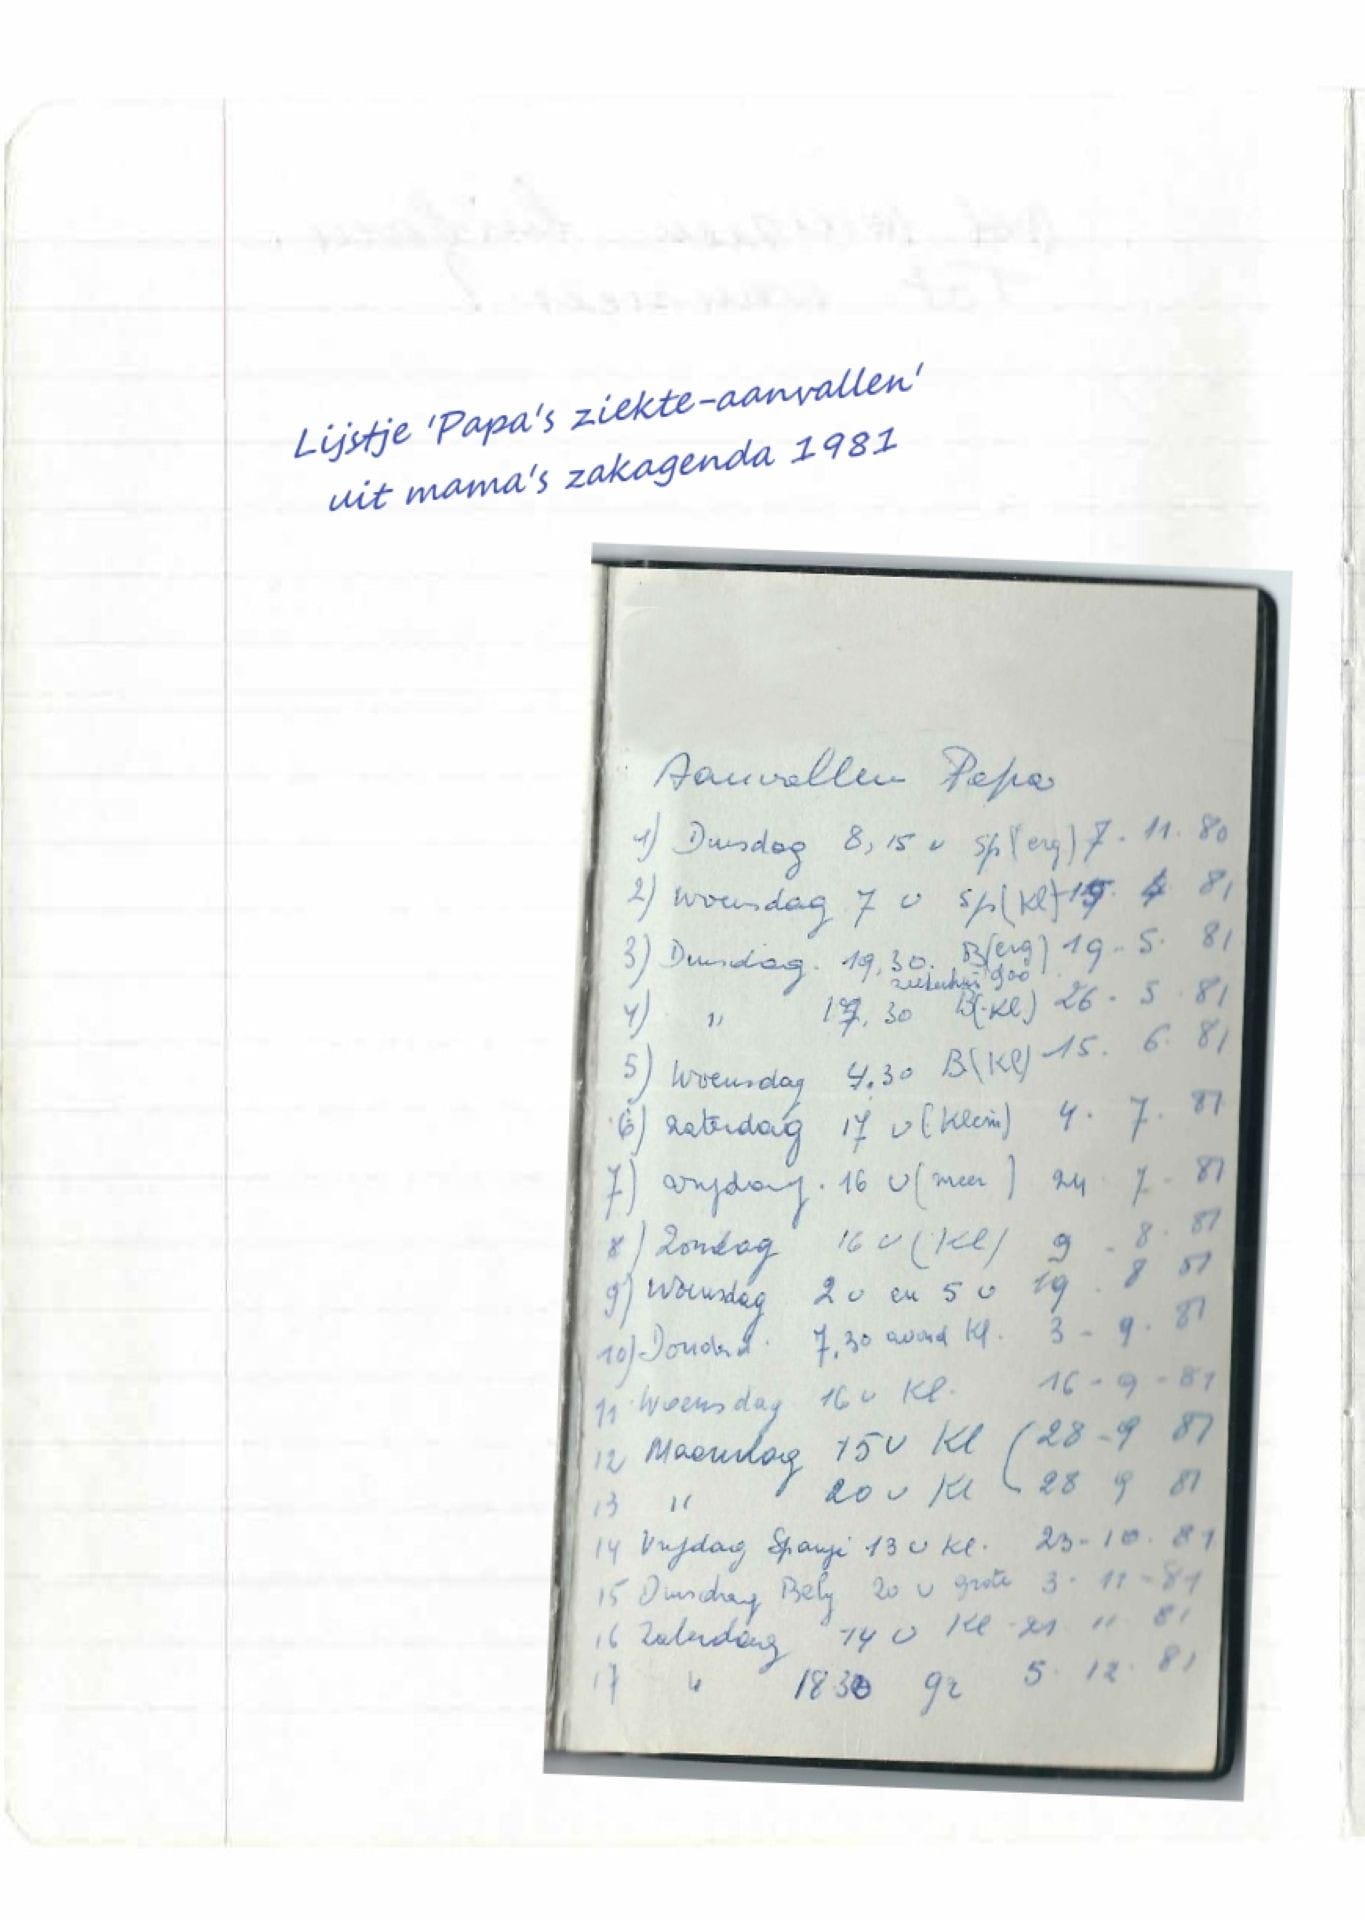 Lijstje 'Papa's ziekte-aanvallen'
uit mama's zakagenda 1981
Aanvallen Papa
1) Dinsdag 8,15 u Sp(erg) 7. 11. 80
2) Woensdag 7 u Sp(Kl) 4 81
3) Dinsdag. 19,30. B(erg) 19. 5. 81
4) " 30 B(Kl) 26. 5. 81
5) Woensdag 4.30 B(Kl) 15. 6. 81
6) Zaterdag 17 u (Klein) 4. 7. 81
7) Vrijdag. 16 u (meer) 24 7. 81
8) Zondag 16 u (Kl) 9. 8. 81
9) Woensdag 2 u en 5 u 19. 8 81
10) Donderd. 7,30 avond Kl. 3 - 9. 81
11 Woensdag 16 u Kl. 16 - 9 - 81
12 Maandag 15 u Kl (28 - 9 81
13 " 20 u Kl 28 9 81
14 Vrijdag Spanje 13 u Kl. 23 - 10. 81
15 Dinsdag Belg 20 u grote 3. 11 - 81
16 Zaterdag 14 u Kl 21 11. 81
17 " 1830 gr 5. 12. 81